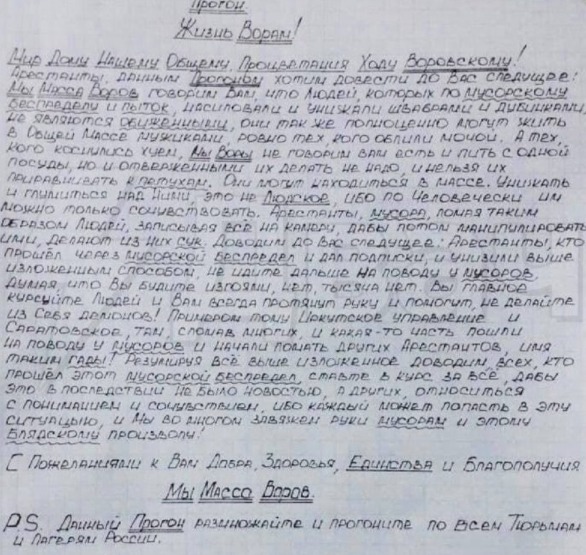 Прогон
Жизнь Ворам!
Мир Дому Нашему Общему, Процветания Ходу Воровскому!
Арестанты, данным Прогоном хотим довести до Вас следущее:
Мы Масса Воров говорим Вам что Людей, которых по мусорскому
беспределу и пыток, насиловали и унижали швабрами и дубинками,
не являются обиженными, они так же полноценно могут жить
в Общей Массе мужиками, ровно тех, кого облили мочой. А тех,
кого коснулись хуем, Мы Воры не говорим вам есть и пить с одной
посуды, но и отверженными их делать не надо, и нельзя их
приравнивать к петухам. Они могут находиться в массе. Унижать
и глумиться над Ними, это не Людское, ибо по Человечески им
можно только сочувствовать. Арестанты, мусора, ломая таким
образом Людей, записывая всё на камери, дабы потом манипулировать
ими, делают из них сук. Доводим до Вас следущее: Арестанты, кто
прошёл через мусорской беспредел и дал подписки, и унизили выше
изложенным способом, не идите дальше на поводу у мусоров
думая, что Вы будите изгоями, нет, тысяча нет. Вы главное
курсуйте Людей и Вам всегда протянут руку и помогут, не делайте
из себя демонов! Примером тому Иркутское управление и
Саратовское, там, сломав многих, и какая-то часть пошли
на поводу у мусоров и начали ломать других Арестантов, имя
таким гады! Резумируя всё выше изложенное доводим всех, кто
прошёл этот мусорской беспредел, ставте в курс за всё, дабы
это в последствии не было новостью, а других, относиться
с пониманием и сочувствием, ибо каждый может попасть в эту
ситуацию, и Мы во многом завяжем руки мусорам и этому
блядскому произволу!
С Пожеланиями к Вам Добра, Здоровья, Единства и Благополучия
Мы Масса Воров.
P.S. Данный Прогон размножайте и прогоните по всем Тюрьмам
и Лагерям России.